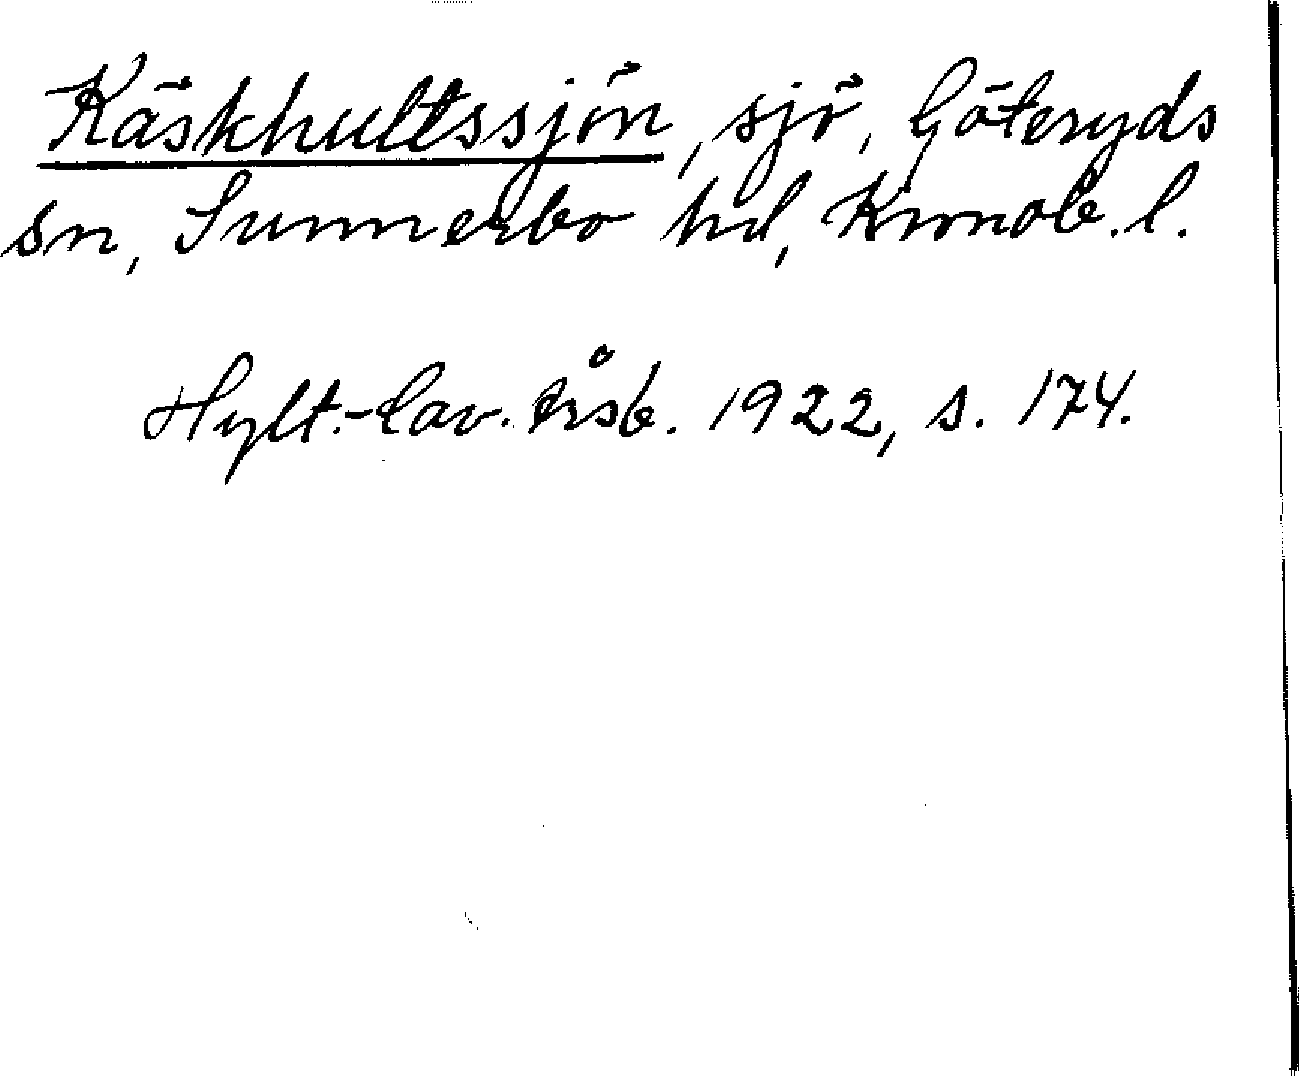 Käskhultssjön, sjö, Göteryds
sn, Sunnerbo hd, Kronob. l.
Hylt.-Cav. årsb. 1922, s. 174.